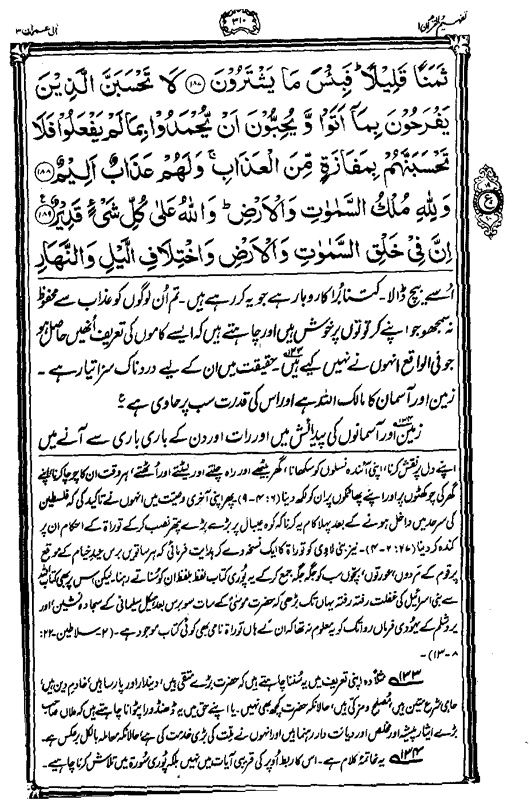 تفہیم القرآن ۱
۳۱۰
اٰل عمران ۳
ثَمَنًا قَلِيْلًا ؕ فَبِئْسَ مَا يَشْتَرُوْنَ ﴿۱۸۷﴾ لَا تَحْسَبَنَّ الَّذِيْنَ
يَفْرَحُوْنَ بِمَاۤ اَتَوْا وَّ يُحِبُّوْنَ اَنْ يُّحْمَدُوْا بِمَا لَمْ يَفْعَلُوْا فَلَا
تَحْسَبَنَّهُمْ بِمَفَازَةٍ مِّنَ الْعَذَابِ ۚ وَلَهُمْ عَذَابٌ اَلِيْمٌ ﴿۱۸۸﴾
وَلِلّٰهِ مُلْكُ السَّمٰوٰتِ وَالْاَرْضِ ؕ وَاللّٰهُ عَلٰى كُلِّ شَيْءٍ قَدِيْرٌ ﴿۱۸۹﴾ ع
اِنَّ فِيْ خَلْقِ السَّمٰوٰتِ وَالْاَرْضِ وَاخْتِلَافِ الَّيْلِ وَالنَّهَارِ
اُسے بیچ ڈالا۔ کتنا بُرا کاروبار ہے جو یہ کر رہے ہیں۔ تم اُن لوگوں کو عذاب سے محفوظ
نہ سمجھو جو اپنے کرتوتوں پر خوش ہیں اور چاہتے ہیں کہ ایسے کاموں کی تعریف اُنھیں حاصل ہو
جو فی الواقع انہوں نے نہیں کیے ہیں۱۳۳۔ حقیقت میں ان کے لیے دردناک سزا تیار ہے۔
زمین اور آسمان کا مالک اللہ ہے اور اس کی قدرت سب پر حاوی ہے ع
زمین۱۳۴ اور آسمانوں کی پیدائش میں اور رات اور دن کے باری باری سے آنے میں
اپنے دل پر نقش کرنا، اپنی آئندہ نسلوں کو سکھانا، گھر بیٹھے اور راہ چلتے اور لیٹتے اور اُٹھتے، ہر وقت ان کا چرچا کرنا، اپنے
گھر کی چوکھٹوں پر اور اپنے پھاٹکوں پر ان کو لکھ دینا (۶: ۴-۹)۔ پھر اپنی آخری وصیت میں انہوں نے تاکید کی کہ فلسطین
کی سرحد میں داخل ہونے کے بعد پہلا کام یہ کرنا کہ کوہ عیبال پر بڑے بڑے پتھر نصب کر کے توراۃ کے احکام ان پر
کندہ کر دینا (۲۷: ۲-۴)۔ نیز بنی لاوی کو توراۃ کا ایک نسخہ دے کر ہدایت فرمائی کہ ہر ساتویں برس عید خیام کے موقع
پر قوم کے مردوں، عورتوں، بچوں سب کو جگہ جگہ جمع کر کے یہ پُوری کتاب لفظ بلفظ ان کو سُناتے رہنا۔ لیکن اس پر بھی کتاب اللہ
سے بنی اسرائیل کی غفلت رفتہ رفتہ یہاں تک بڑھی کہ حضرت موسیٰؑ کے سات سو برس بعد ہیکل سلیمانی کے سجادہ نشین، اور
یروشلم کے یہودی فرماں روا تک کو یہ معلوم نہ تھا کہ اُن کے ہاں توراۃ نامی بھی کوئی کتاب موجود ہے۔ (۲-سلاطین-۲۲:
۸-۱۳)۔
۱۳۳ مثلاً وہ اپنی تعریف میں یہ سُننا چاہتے ہیں کہ حضرت بڑے متقی ہیں، دیندار اور پارسا ہیں، خادمِ دین ہیں،
حامیِ شرع متین ہیں، مُصلح و مزکی ہیں، حالانکہ حضرت کچھ بھی نہیں۔ یا اپنے حق میں یہ ڈھنڈورا پٹوانا چاہتے ہیں کہ فلاں صاحب
بڑے ایثار پیشہ اور مخلص اور دیانت دار رہنما ہیں اور انہوں نے ملّت کی بڑی خدمت کی ہے، حالانکہ معاملہ بالکل برعکس ہے۔
۱۳۴ یہ خاتمۂ کلام ہے۔ اس کا ربط اُوپر کی قریبی آیات میں نہیں بلکہ پُوری سُورۃ میں تلاش کرنا چاہیے۔